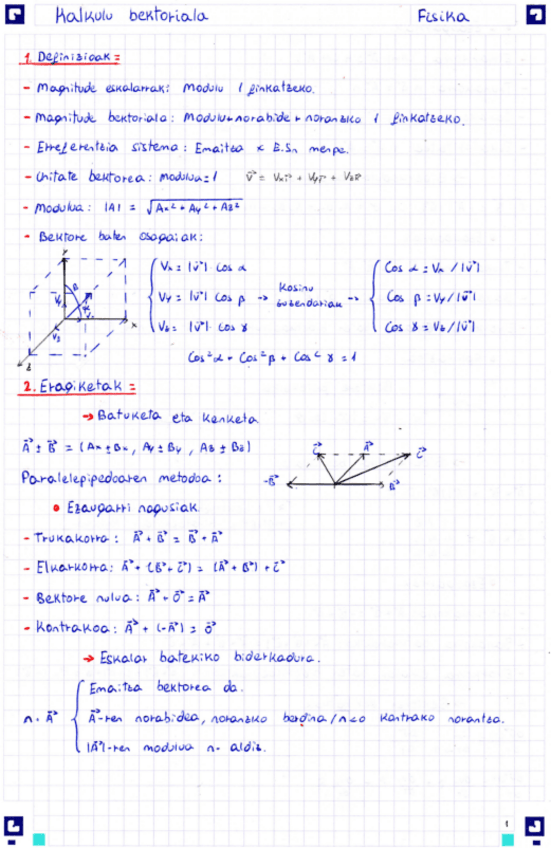 Kalkulu bektoriala Fisika
1. Definizioak:
- Magnitude eskalarrak: Modulu / finkatzeko.
- Magnitude bektoriala: Modulu+norabide+noranzko / finkatzeko.
- Erreferentzia sistema: Emaitza x E.Sn menpe.
- Unitate bektorea: modulua=1 V⃗ = Vx i⃗ + Vy j⃗ + Vz k⃗
- Modulua: |A| = √Ax² + Ay² + Az²
- Bektore baten osagaiak:
Vx = |V⃗| cos α
Vy = |V⃗| cos β → Kosinu zuzendariak →
Vz = |V⃗| cos γ
Cos α = Vx / |V⃗|
Cos β = Vy / |V⃗|
Cos γ = Vz / |V⃗|
Cos² α + Cos² β + Cos² γ = 1
2. Eragiketak:
→ Batuketa eta kenketa
A⃗ ± B⃗ = (Ax ± Bx, Ay ± By, Az ± Bz)
Paralelepipedoaren metodoa:
C⃗ A⃗ C⃗
-B⃗ B⃗
• Ezaugarri nagusiak
- Trukakorra: A⃗ + B⃗ = B⃗ + A⃗
- Elkarkorra: A⃗ + (B⃗ + C⃗) = (A⃗ + B⃗) + C⃗
- Bektore nulua: A⃗ + O⃗ = A⃗
- Kontrakoa: A⃗ + (-A⃗) = O⃗
→ Eskalar batekiko biderkadura.
Emaitza bektorea da.
n · A⃗ A⃗-ren norabidea, noranzko berdina / n<0 kontrako norantza.
|A⃗|-ren modulua n- aldiz.
1